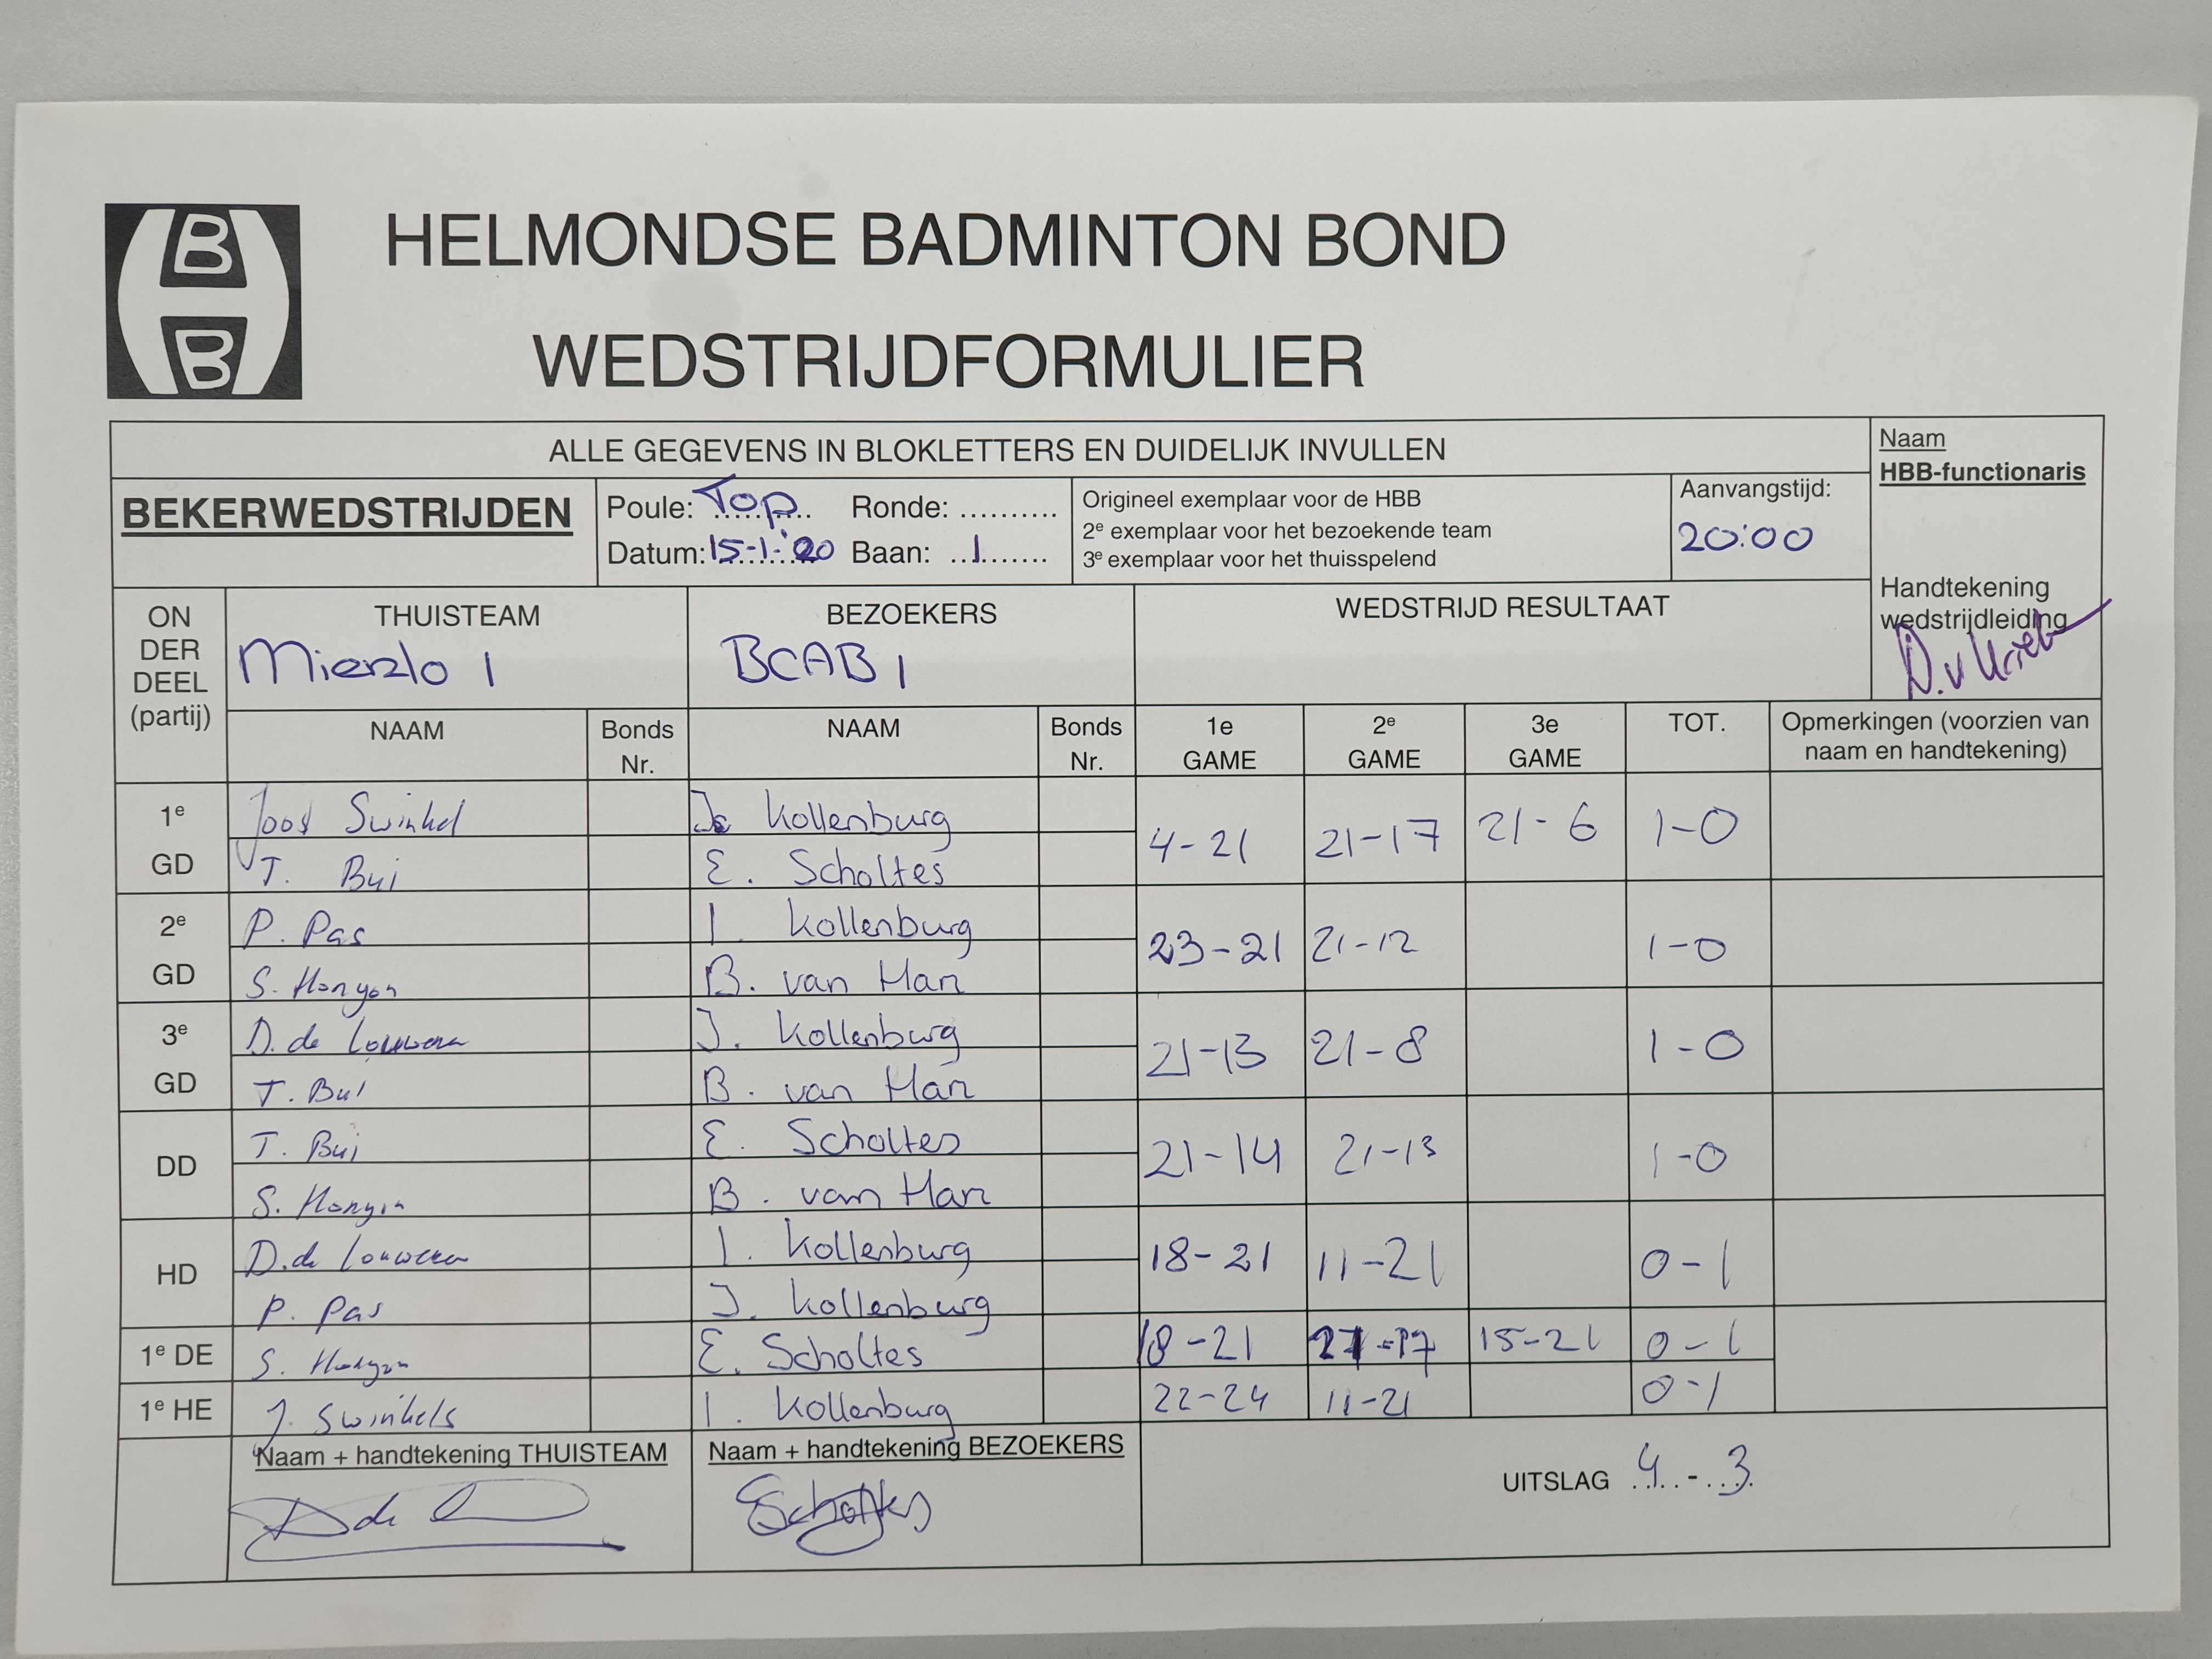 B
B
HELMONDSE BADMINTON BOND
WEDSTRIJDFORMULIER
ALLE GEGEVENS IN BLOKLETTERS EN DUIDELIJK INVULLEN
Naam
HBB-functionaris
BEKERWEDSTRIJDEN
Poule: Top Ronde: ..........
Datum: 15-1-'20 Baan: 1
Origineel exemplaar voor de HBB
2e exemplaar voor het bezoekende team
3e exemplaar voor het thuisspelend
Aanvangstijd:
20:00
Handtekening
wedstrijdleiding
ON
DER
DEEL
(partij)
THUISTEAM
Mierlo 1
BEZOEKERS
BCAB 1
WEDSTRIJD RESULTAAT
NAAM
Bonds
Nr.
NAAM
Bonds
Nr.
1e
GAME
2e
GAME
3e
GAME
TOT.
Opmerkingen (voorzien van
naam en handtekening)
1e
GD
Joost Swinkel
T. Bui
Kollenburg
E. Scholtes
4-21 21-17 21-6 1-0
2e
GD
P. Pas
S. Honyon
I. Kollenburg
B. van Han
23-21 21-12 1-0
3e
GD
D. de Louwere
T. Bui
J. Kollenburg
B. van Han
21-13 21-8 1-0
DD
T. Bui
S. Honyon
E. Scholtes
B. van Han
21-14 21-13 1-0
HD
D. de Louwere
P. Pas
I. Kollenburg
J. Kollenburg
18-21 11-21 0-1
1e DE
S. Honyon
E. Scholtes
18-21 21-17 15-21 0-1
1e HE
J. Swinkels
I. Kollenburg
22-24 11-21 0-1
Naam + handtekening THUISTEAM
Naam + handtekening BEZOEKERS
EScholtes
UITSLAG 4 - 3